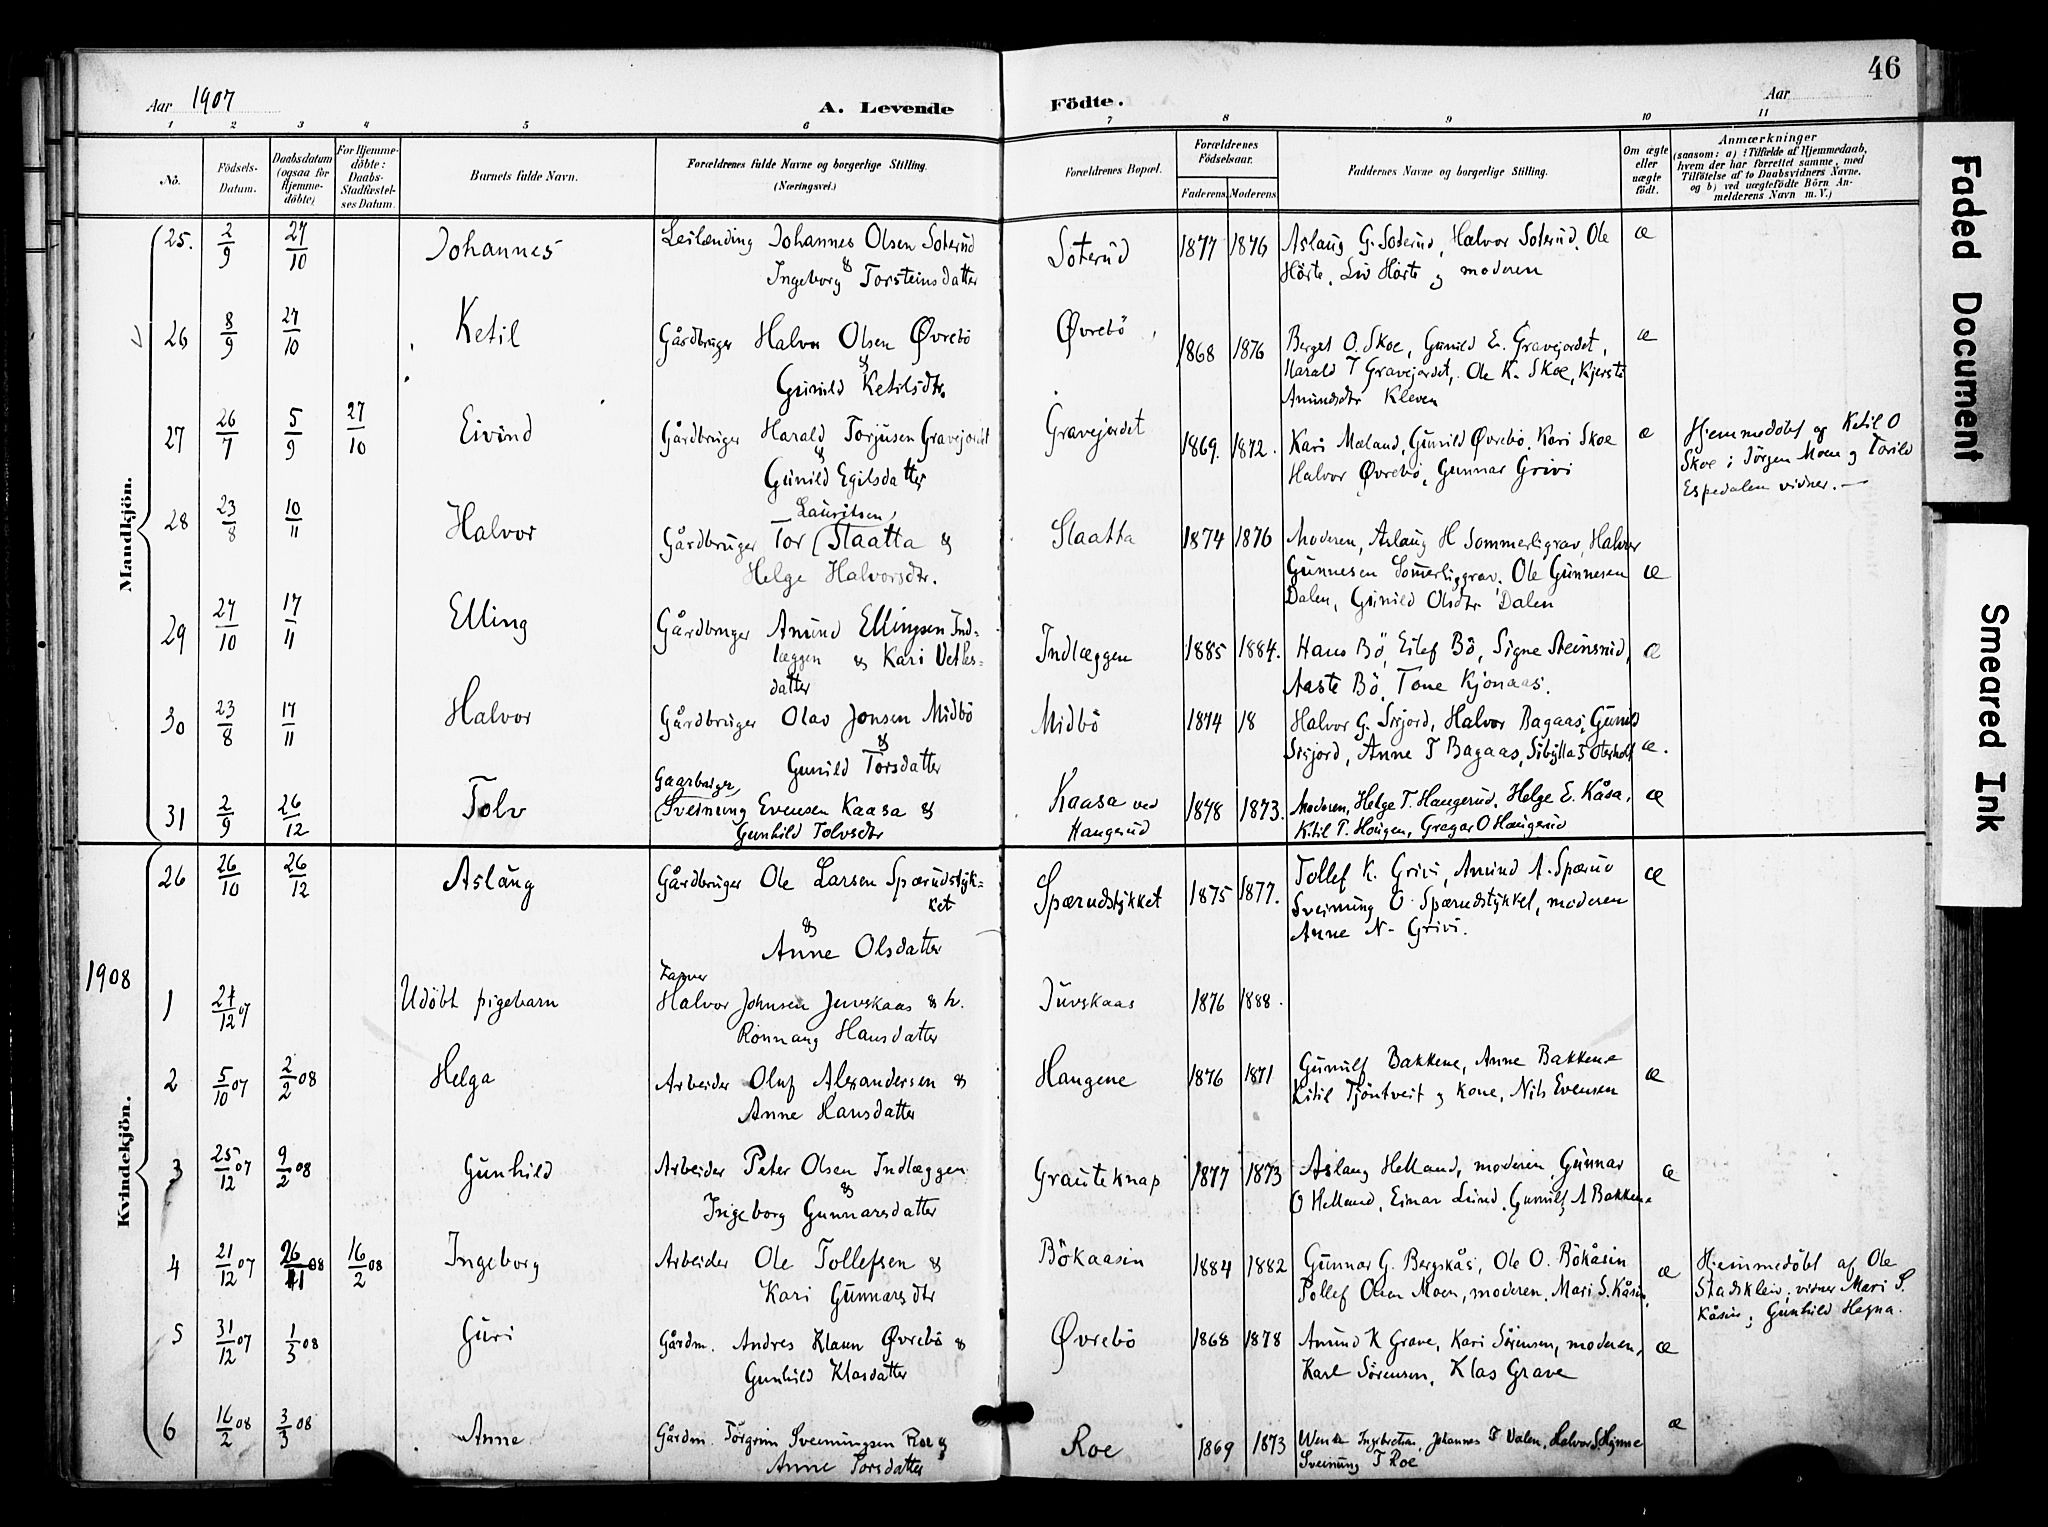 46
Aar 1907
A. Levende
Födte.
Aar
1 2 3 4 5 6 7 8 9 10 11
No.
Födsels-
Datum.
Daabsdatum
(ogsaa for
Hjemme-
döbte)
For Hjemme-
döbte:
Daabs-
Stadfæstel-
ses Datum.
Barnets fulde Navn.
Forældrenes fulde Navne og borgerlige Stilling.
(Næringsvei.)
Forældrenes Bopæl.
Forældrenes
Födselsaar.
Faderens. Moderens.
Faddernes Navne og borgerlige Stilling.
Om ægte
eller
uægte
födt.
Anmærkninger
(saasom: a) i Tilfælde af Hjemmedaab,
hvem der har forrettet samme, med
Tilföielse af to Daabsvidners Navne,
og b) ved uægtefödte Börn An-
melderens Navn m. V.)
Mandkjön.
25. 2/9 27/10 Johannes Leilænding Johannes Olsen Soterud Soterud 1877 1876 Aslaug G. Soterud, Halvor Soterud, Ole æ
& Ingeborg Torsteinsdatter Hörte, Liv Hörte og moderen
26 8/9 27/10 Ketil Gårdbruger Halvor Olsen Øvrebö Øvrebö 1868 1876 Berget O. Skoe, Gunild E. Gravejordet, æ
& Gunild Ketilsdtr. Harald T Gravejordet, Ole K. Skoe, Kjersti
Amundsdtr Kleven
27 26/7 5/9 27/10 Eivind Gårdbruger Harald Torjusen Gravejordet Gravejordet 1869. 1872. Kari Mæland, Gunild Øvrebö, Kari Skoe æ Hjemmedöbt af Ketil O
& Gunild Egilsdatter Halvor Øvrebö, Gunnar Grivi Skoe; Jörgen Moen og Torild
Espedalen vidner. —
28 23/8 10/11 Halvor Lauritsen,
Gårdbruger Tor (Slaatta & Slaatta 1874 1876 Moderen, Aslaug H Sommerligrav, Halvor
Helge Halvorsdtr. Gunnesen Somerliggrav, Ole Gunnesen æ
Dalen, Gunild Olsdtr Dalen
29 27/10 17/11 Elling Gårdbruger Amund Ellingsen Ind-
læggen & Kari Vetles-
datter Indlæggen 1885 1884. Hans Bö, Eilef Bö, Signe Steinsrud, æ
Aaste Bö, Tone Kjonaas.
30 23/8 17/11 Halvor Gårdbruger Olav Jonsen Midbö Midbö 1874 18 Halvor G. Sisjord, Halvor Bagaas, Gunild
& Gunild Torsdatter Sisjord, Anne T Bagaas, Sibylla T Oterholt æ.
31 2/9 26/12 Tolv Gaarbruger
(Sveinung Evensen Kaasa & Kaasa ved 1878 1873. Moderen, Helge T. Haugerud, Helge E. Kåsa, æ
Gunhild Tolvsdtr Haugerud Kitil T. Haugen, Gregar O Haugerud
Kvindekjön.
26 26/10 26/12 Aslaug Gårdbruger Ole Larsen Spærudstyk-
ket Spærudstykket 1875 1877. Tollef K. Grivi, Amund A. Spærud æ
& Anne Olsdatter Sveinung O Spærudstykket, moderen
Anne N- Grivi.
1908
1 27/12 07 Udöbt pigebarn
Halvor Johnsen Juvskaas & h. Juvskaas 1876 1888.
Rönnaug Hansdatter
2 5/10 07 2/2 08 Helga Arbeider Oluf Alexandersen & Haugene 1876 1871 Gunulf Bakkene, Anne Bakkene æ
Anne Hansdatter Kitil Tjöntveit og kone, Nils Evensen
3 25/12 07 9/2 08 Gunhild Arbeider Peter Olsen Indlæggen Grauteknap 1877 1873 Aslaug Helland, moderen, Gunnar æ
& Ingeborg Gunnarsdatter O Helland, Einar Lund, Gunulf A Bakkene
4 21/12 07 26/1 08 16/2 08 Ingeborg Arbeider Ole Tollefsen & Bökaasin 1884 1882 Gunnar G. Bergskås, Ole O. Bökåsin æ Hjemmedöbt af Ole
Kari Gunnarsdtr Tollef Olsen Moen, moderen, Mari S. Kåsin, Stadskleiv; vidner Mari S.
Kåsin; Gunhild Hegna.
5 31/12 07 1/3 08 Guri Gårdm. Andres Klasen Øvrebö & Øvrebö 1868 1878 Amund K Grave, Kari Sörensen, moderen, æ
Gunhild Klasdatter Karl Sörensen, Klas Grave
6 16/2 08 3/3 08 Anne Gårdm. Torgrim Sveinungsen Roe & Roe 1869 1873 Wenke Ingebretsen, Johannes T Valen, Halvor S. Hynne æ
Anne Torsdatter Sveinung T Roe
Faded Document
Smeared Ink